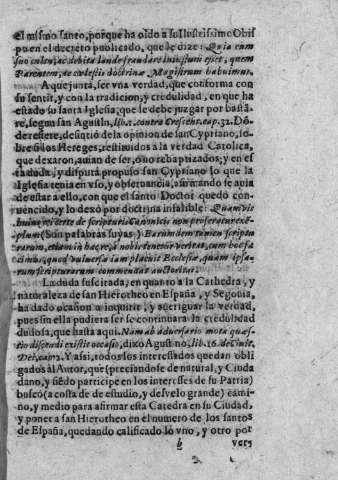 el mismo santo, porque ha oido a su Ilustrissimo Obis
po en el decreto publicado, que le dize: Quia eum
suo cultu, ac debita laude fraudare iniustum esset, quem
Parentem, ac cœlestis doctrinæ Magistrum habuimus.
A que junta, ser vna verdad, que conforma con
su sentir, y con la tradicion, y credulidad, en que ha
estado su santa Iglesia, que se debe juzgar por bastã
te, segun san Agustin, lib. 1. contra Crescent. cap. 32. Dõ
de refiere, desistiò de la opinion de san Cypriano, so
bre si los Hereges, restituidos a la verdad Catolica,
que dexaron, auian de ser, ò no rebaptizados; y en es
ta duda, y disputa propuso san Cypriano lo que la
Iglesia tenia en vso, y obseruancia, afirmando se auia
de estar a ello, con que el santo Doctor quedò con
uencido, y lo dexò por doctrina infalible: Quamvis
huius rei certe de scripturis Canonicis non proferatur exẽ
plum (Son palabras suyas) Earumdem tamen scriptu
rarum, etiam in hac re, à nobis tenetur veritas, cum hoc fa
cimus, quod vniuersæ iam placuit Ecclesiæ, quam ipsa-
rum scripturarum commendat auctoritas.
La duda suscitada, en quanto a la Cathedra, y
naturaleza de san Hierotheo en España, y Segouia,
ha dado ocasion a inquirir, y aueriguar la verdad,
pues sin ella pudiera ser se continuara la credulidad
dudosa, que hasta aqui. Nam ab adversario mota quæs-
tio discendi existit occasio, dixo Agustino, lib. 16. de Ciuit.
Dei, cap. 2. Y assi, todos los interessados quedan obli
gados al Autor, que (preciandose de natural, y Ciuda
dano, y siẽdo participe en los interesses de su Patria)
buscò (a costa de de estudio, y desvelo grande) cami
no, y medio para afirmar esta Catedra en su Ciudad,
y poner a san Hierotheo en el numero de los santos
de España, quedando calificado lo vno, y otro por
b
ver;